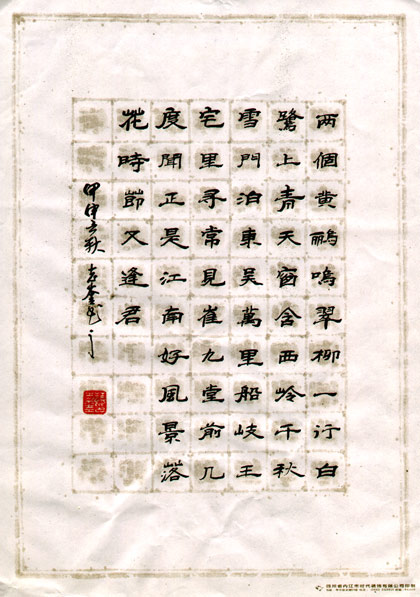 两個黄鸝鳴翠柳一行白
鷺上青天窗含西岭千秋
雪門泊東吴萬里船岐王
宅里尋常見崔九堂前几
度聞正是江南好風景落
花時節又逢君
甲申之秋